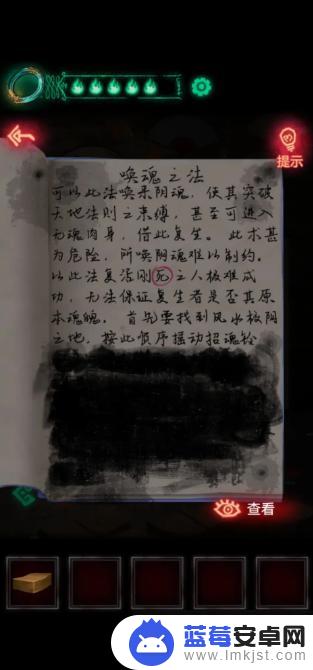 提示
唤魂之法
可以此法唤来阴魂，使其突破
天地法则之束缚，甚至可进入
无魂肉身，借此复生。此术甚
为危险，所唤阴魂难以制约。
以此法复活刚死之人极难成
功，无法保证复生者是否其原
本魂魄。首先要找到风水极阴
之地，按此顺序摇动招魂铃
查看
蓝莓安卓网
www.lmkjst.com